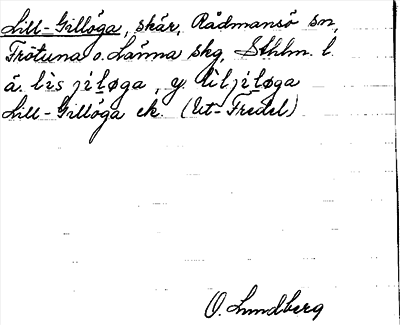 Lill-Gillöga, skär, Rådmansö sn,
Frötuna o. Länna skg, Sthlm. l.
ä. lìs jiløga, y. lìljiløga
Lill-Gillöga ek. (Ut-Fredel)
O. Lundberg